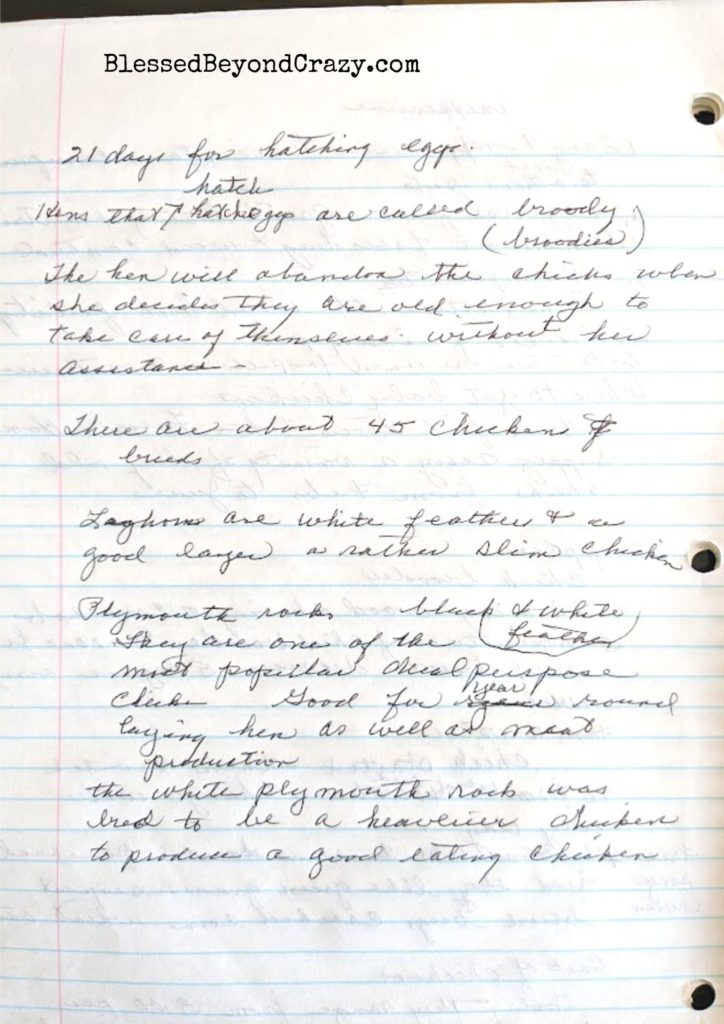 BlessedBeyondCrazy.com
21 days for hatching eggs.
hatch
Hens that eggs are called broody
(broodies)
The hen will abandon the chicks when
she decides they are old enough to
take care of themselves. without her
assistance.
There are about 45 chicken
breeds
Leghorns are white feather & a
good layer a rather slim chicken
Plymouth rocks black & white
feather
They are one of the
most popular dual purpose
year
Good for round
laying hen as well as meat
production
the white plymouth rock was
bred to be a heavier chicken
to produce a good eating chicken